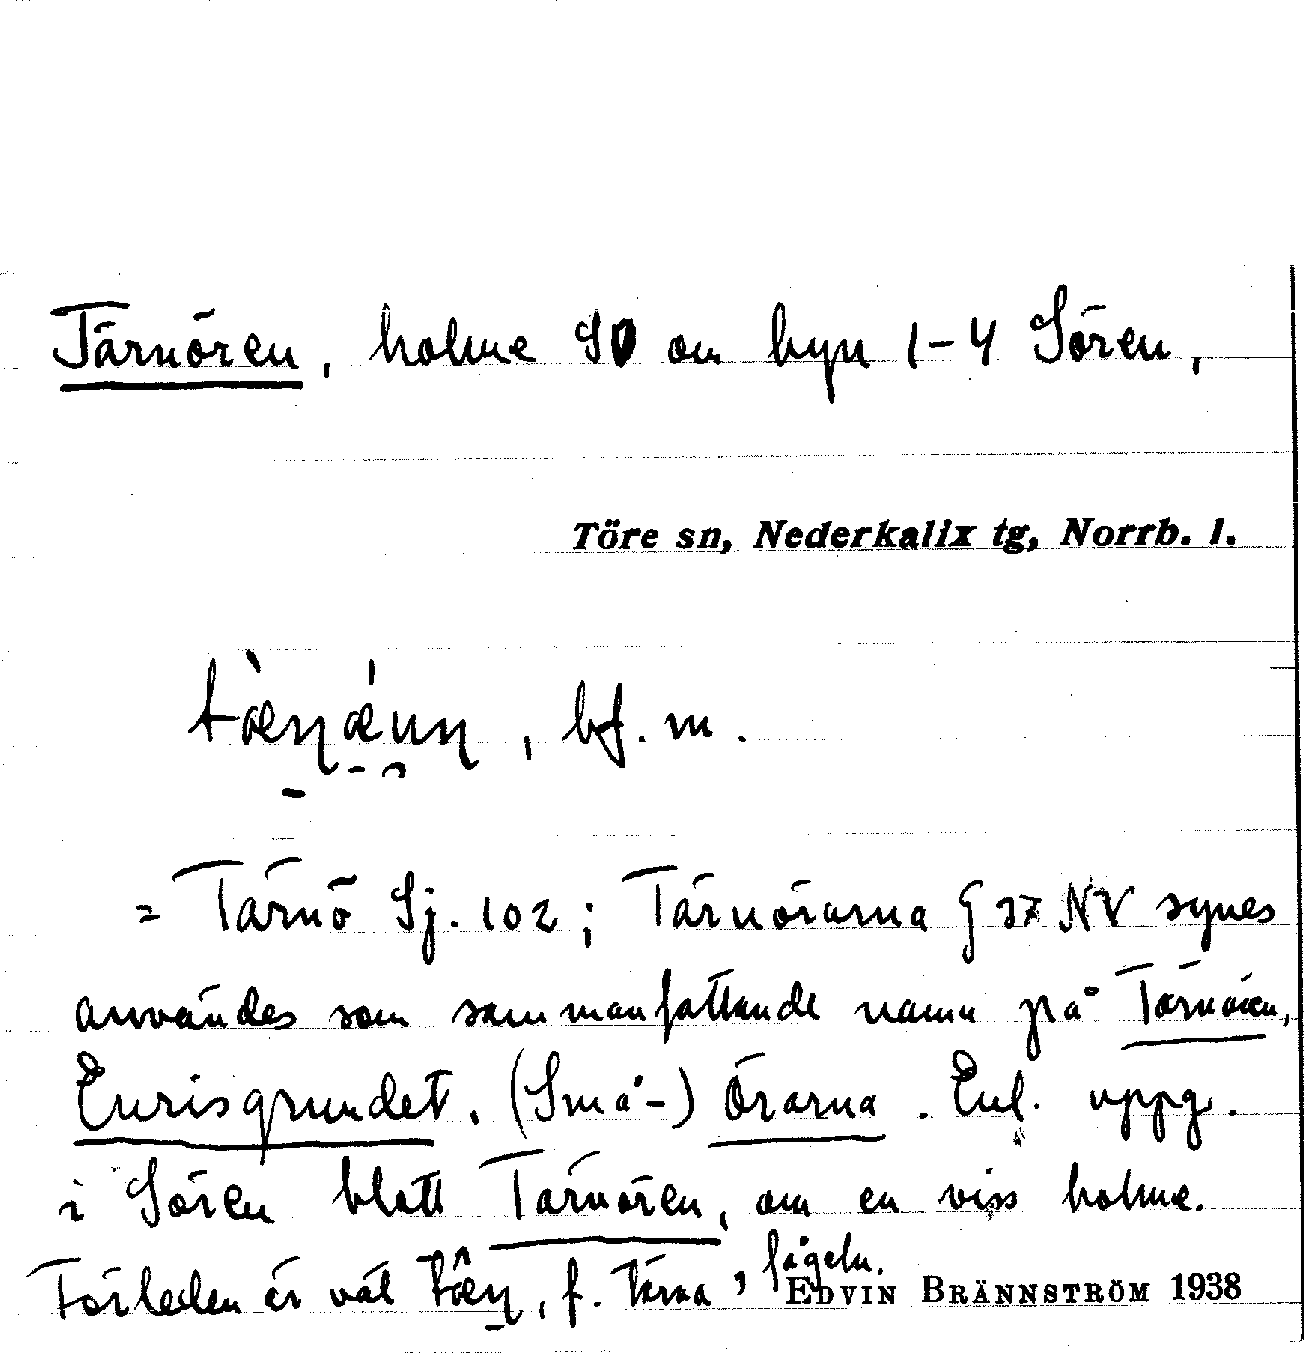 Tärnören, holme SO om byn 1–4 Sören,
Töre sn, Nederkalix tg, Norrb. l.
bf. m.
= Tärnö Sj. 102; Tärnörarna G 37 NV synes
användes som sammanfattande namn på Tärnören,
Enrisgrundet, (Små-) Örarna. Enl. uppg.
i Sören blott Tärnören, om en viss holme.
Förleden är väl f. tärna, fågeln.
EDVIN BRÄNNSTRÖM 1938